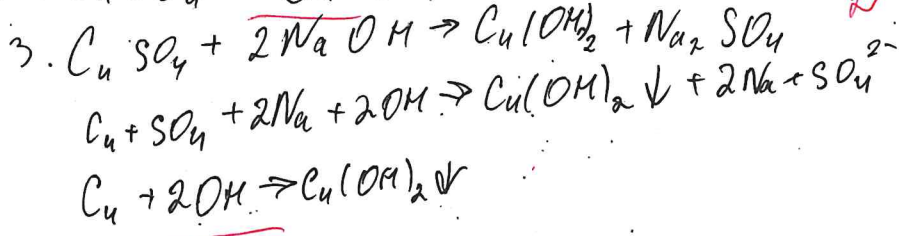 3. CuSO₄ + 2NaOH → Cu(OH)₂ + Na₂SO₄
Cu + SO₄ + 2Na + 2OH → Cu(OH)₂↓ + 2Na + SO₄²⁻
Cu + 2OH → Cu(OH)₂↓